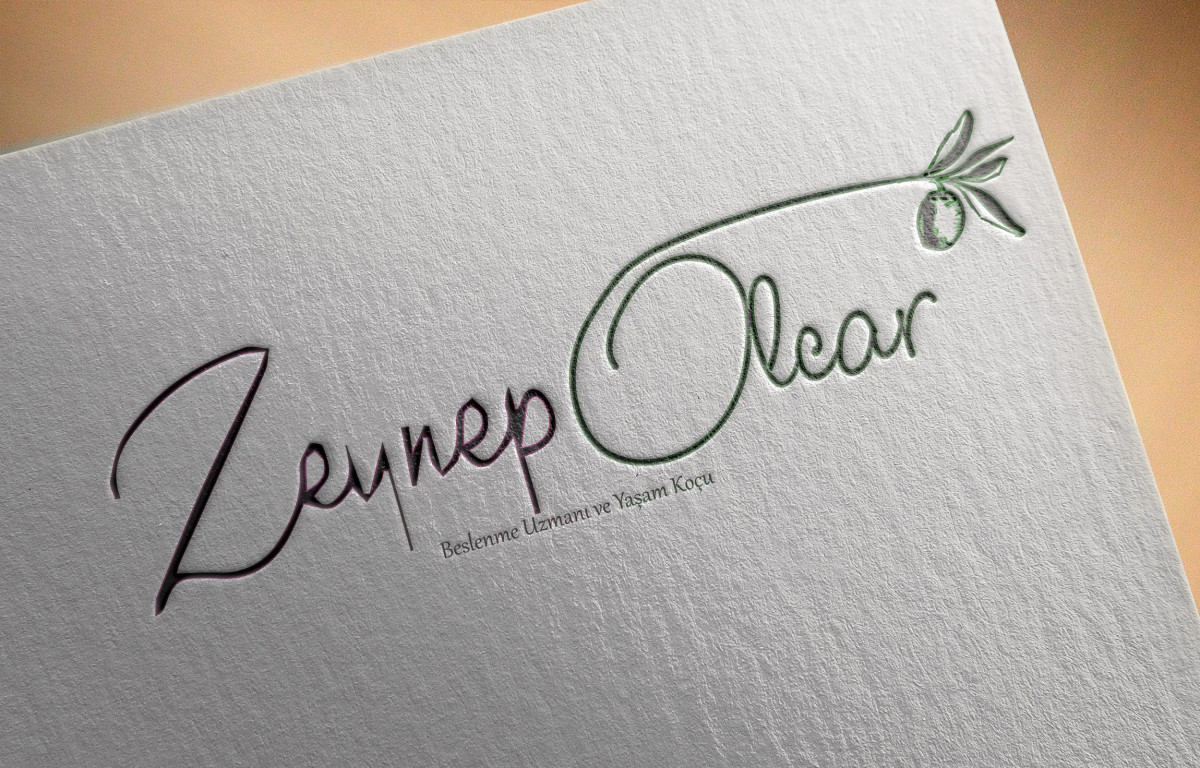 Zeynep Olcar
Beslenme Uzmanı ve Yaşam Koçu